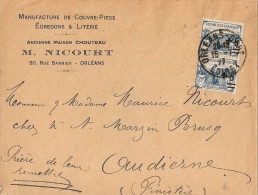 MANUFACTURE DE COUVRE-PIEDS
ÉDREDONS & LITERIE
ANCIENNE MAISON CHOUTEAU
M. NICOURT
80, RUE BANNIER - ORLÉANS
Monsieur & Madame Maurice Nicourt
chez Mr Margin Brusq
Prière de leur
remettre
Audierne
Finistère